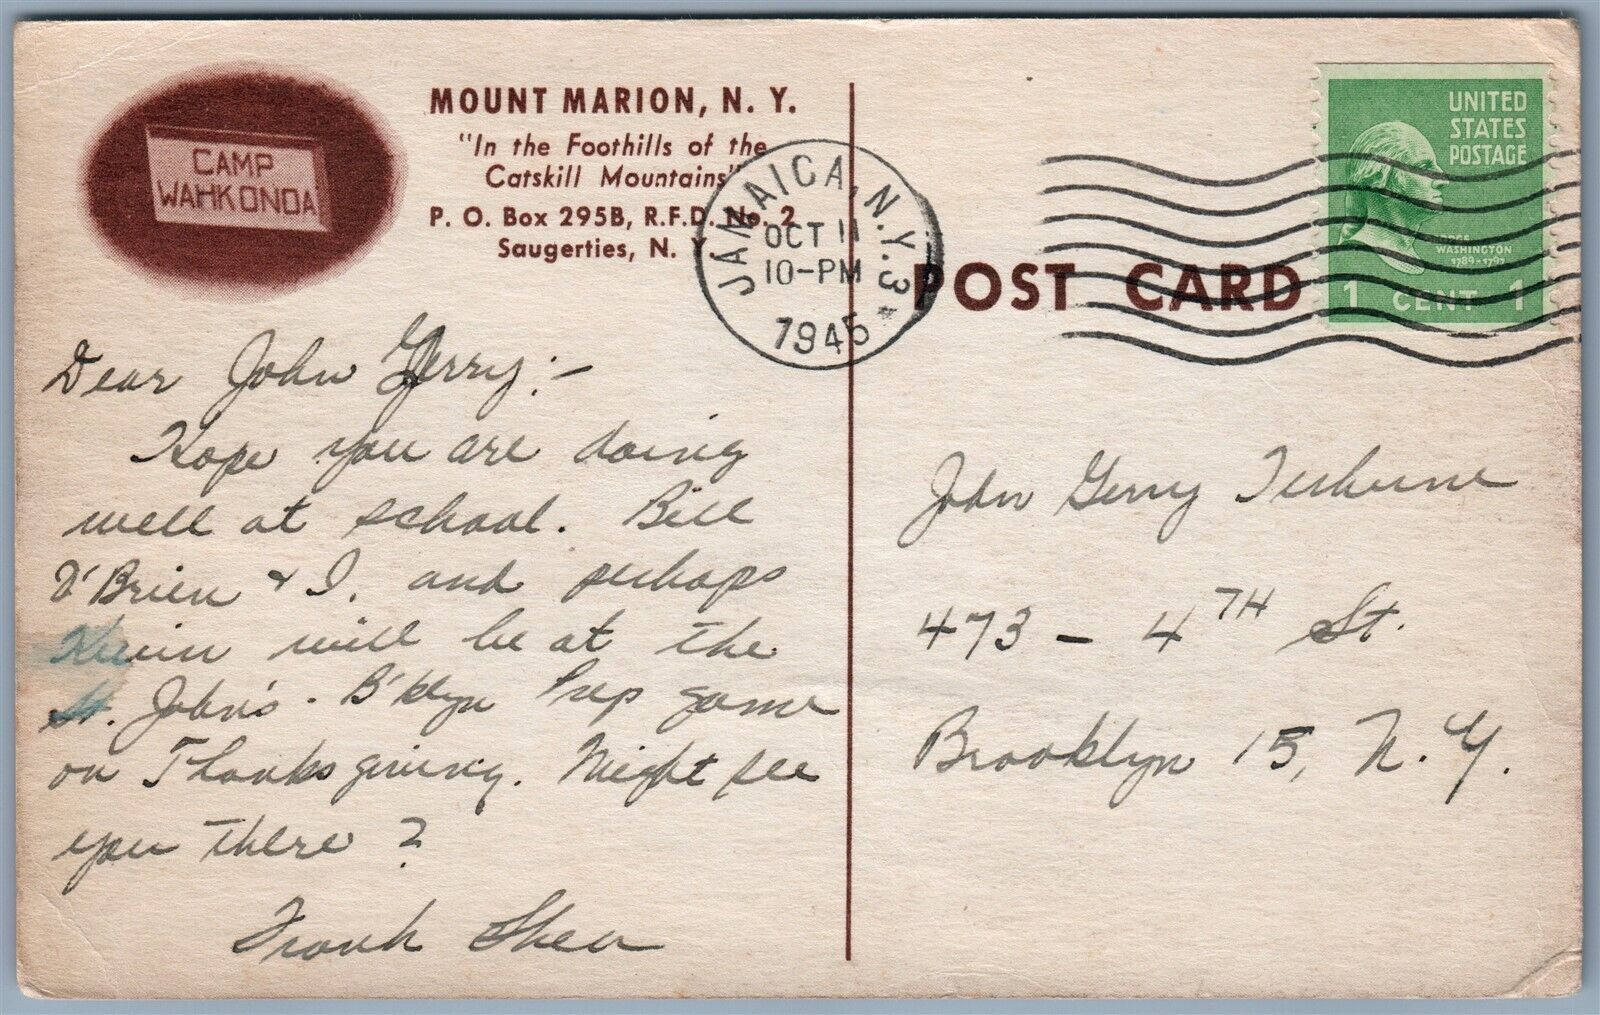 CAMP
WAHKONDA
MOUNT MARION, N. Y.
"In the Foothills of the
Catskill Mountains"
P. O. Box 295B, R.F.D. No. 2
Saugerties, N. Y.
JAMAICA, N.Y. 3
OCT 11
10-PM
1945
POST CARD
UNITED
STATES
POSTAGE
GEORGE
WASHINGTON
1789-1797
1 CENT 1
Dear John Gerry:-
Hope you are doing
well at school. Bill
O'Brien & I. and perhaps
Kevin will be at the
St. John's - B'klyn Prep game
on Thanksgiving. Might see
you there?
Frank Shea
John Gerry Terhune
473 - 4TH St.
Brooklyn 15, N. Y.